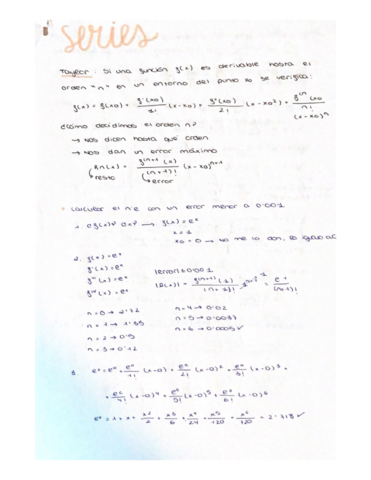 series
Taylor: Si una función f(x) es derivable hasta el
orden "n" en un entorno del punto x0 se verifica:
f(x) = f(x0) + f'(x0)/1! (x-x0) + f''(x0)/2! (x-x0²) + fⁿ/n! (x-x0)ⁿ
¿Cómo decidimos el orden n?
→ Nos dicen hasta que orden
→ Nos dan un error máximo
Rn(x) = fⁿ⁺¹(x)/(n+1)! (x-x0)ⁿ⁺¹
resto
error
calcular el nº e con un error menor a 0'001
x = 1
x0 = 0 → no me lo dan, lo
2. f(x) = eˣ
f'(x) = eˣ
f''(x) = eˣ
f'''(x) = eˣ
|error| ≤ 0'001
n = 0 → 2'72
n = 2 → 0'5
n = 3 → 0'12
n = 4 → 0'02
n = 6 → 0'0005 ✓
3. eˣ = e⁰ + e⁰/1! (x-0) + e⁰/2! (x-0)² + e⁰/3! (x-0)³ +
+ e⁰/4! (x-0)⁴ + e⁰/5! (x-0)⁵ + e⁰/6! (x-0)⁶
eˣ = 1 + x + x²/2 + x³/6 + x⁴/24 + x⁵/120 + x⁶/720 = 2'718 ✓